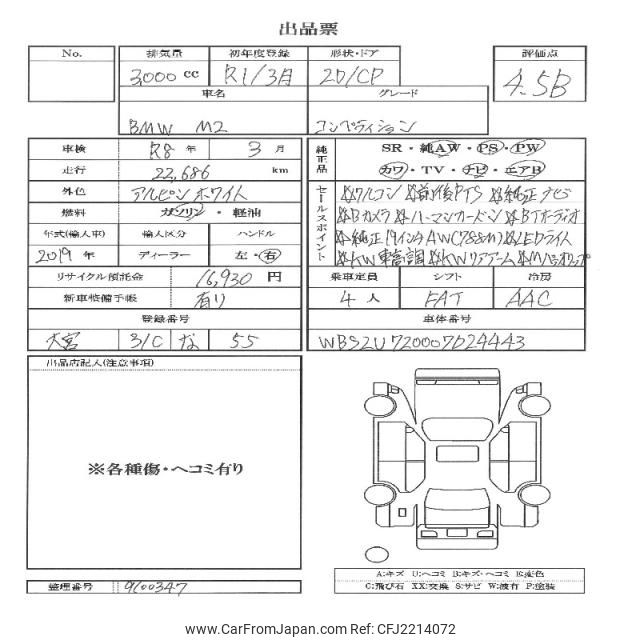 出品票
No. 排気量 初年度登録 形状・ドア 評価点
3,000 cc R1/3月 2D/CP 4.5B
車名 グレード
BMW M2 コンペティション
車検 R8 年 3 月 純正品 SR・純AW・PS・PW
走行 22,686 km カワ・TV・ナビ・エアB
外色 アルピンホワイト セールスポイント ☆フルコン ☆前後PTS ☆純正ナビ
燃料 ガソリン・軽油 ☆Bカメラ ☆ハーマンカードン ☆BTオーディオ
年式(輸入車) 輸入区分 ハンドル ☆純正19インチAW(788M) ☆LEDライト
2019 年 ディーラー 左・右 ☆KW車高調 ☆KWリアアーム
リサイクル預託金 16,930 円 乗車定員 シフト 冷房
新車整備手帳 有り 4 人 FAT AAC
登録番号 車体番号
大宮 31C な 55 WBS2U720007D24443
出品店記入(注意事項)
※各種傷・ヘコミ有り
A:キズ U:ヘコミ B:キズ・ヘコミ E:変色
C:飛び石 XX:交換 S:サビ W:波有 P:塗装
整理番号 9600347
CarFromJapan.com - CFJ2214072